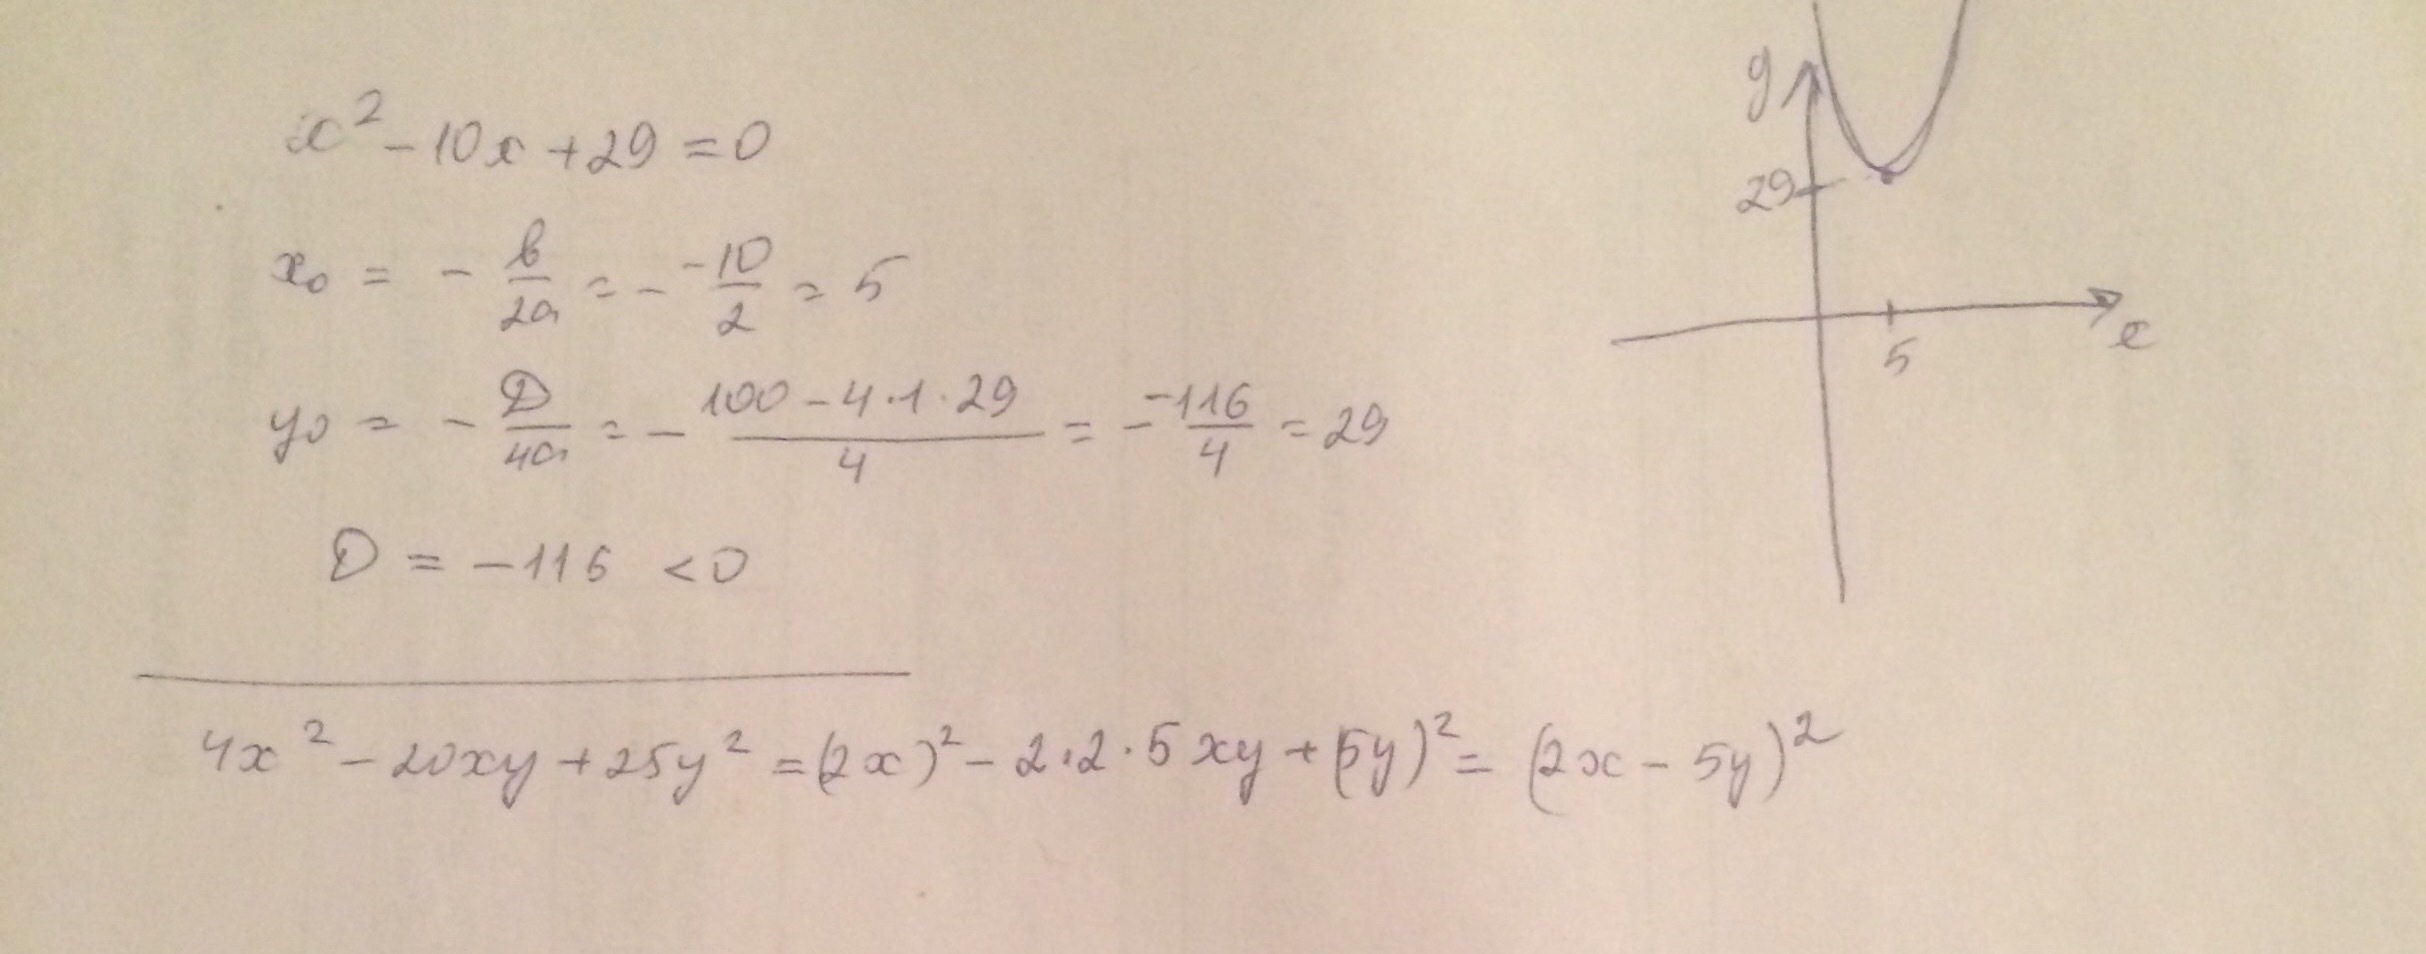 x² - 10x + 29 = 0
x₀ = - b/2a = - -10/2 = 5
y₀ = - D/4a = - (100 - 4·1·29)/4 = - -116/4 = 29
D = -116 < 0
4x² - 20xy + 25y² = (2x)² - 2·2·5xy + (5y)² = (2x - 5y)²
y
29
5
x